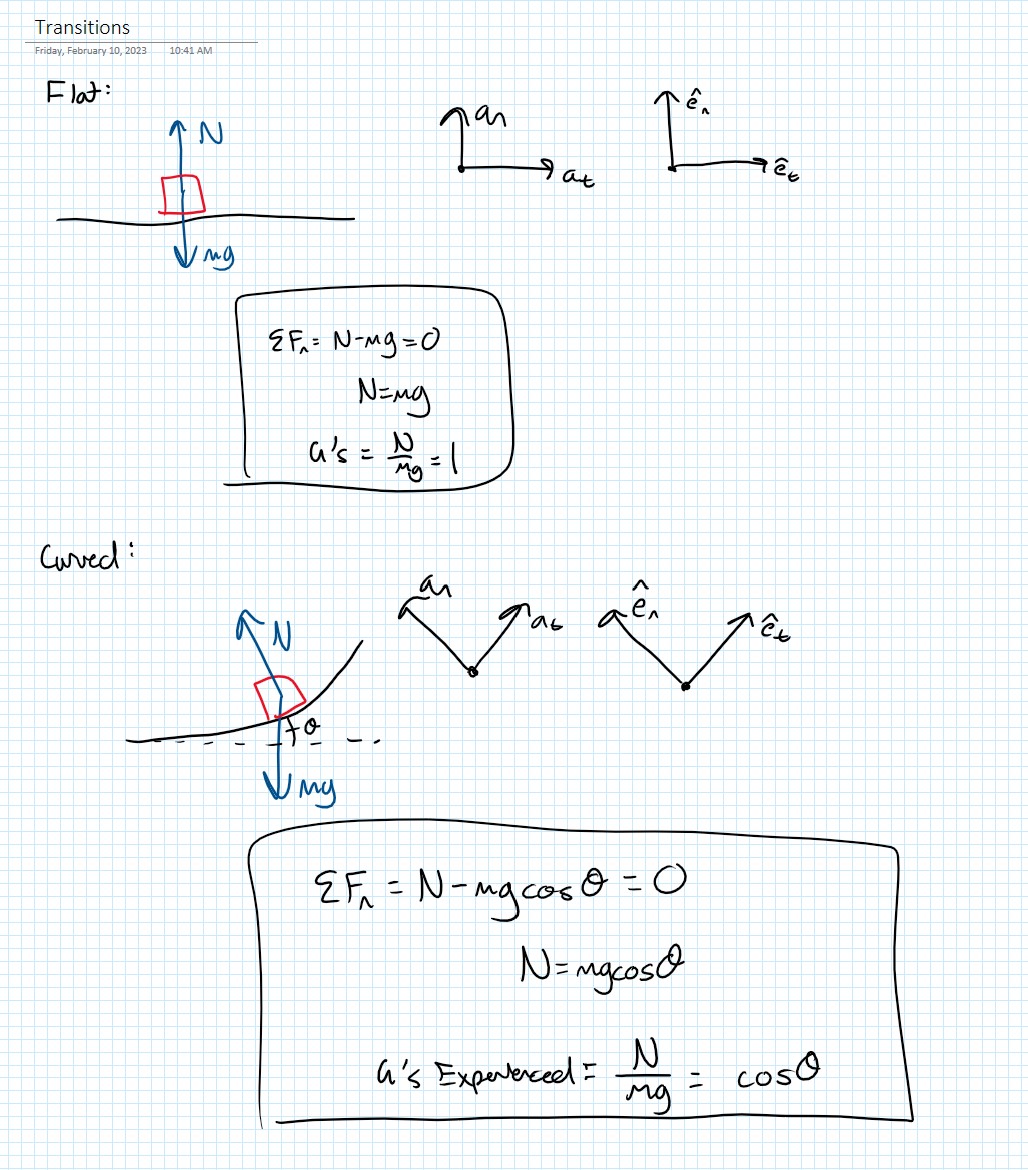 Transitions
Friday, February 10, 2023 10:41 AM
Flat:
N
mg
an
at
ên
êt
ΣFn = N-mg = 0
N=mg
G's = N/mg = 1
Curved:
N
θ
mg
an
at
ên
êt
ΣFn = N-mgcosθ = 0
N=mgcosθ
G's Experienced = N/mg = cosθ